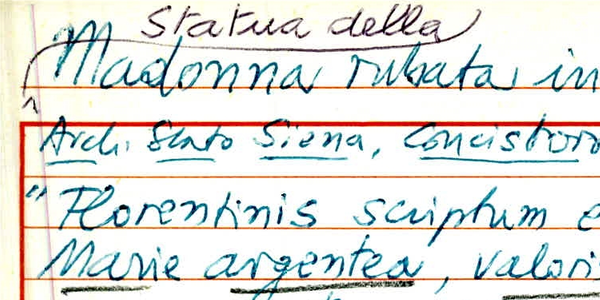 Statua della
Madonna rubata in
Arch. Stato Siena, Concistoro
"Florentinis scriptum e
Marie argentea, valoris